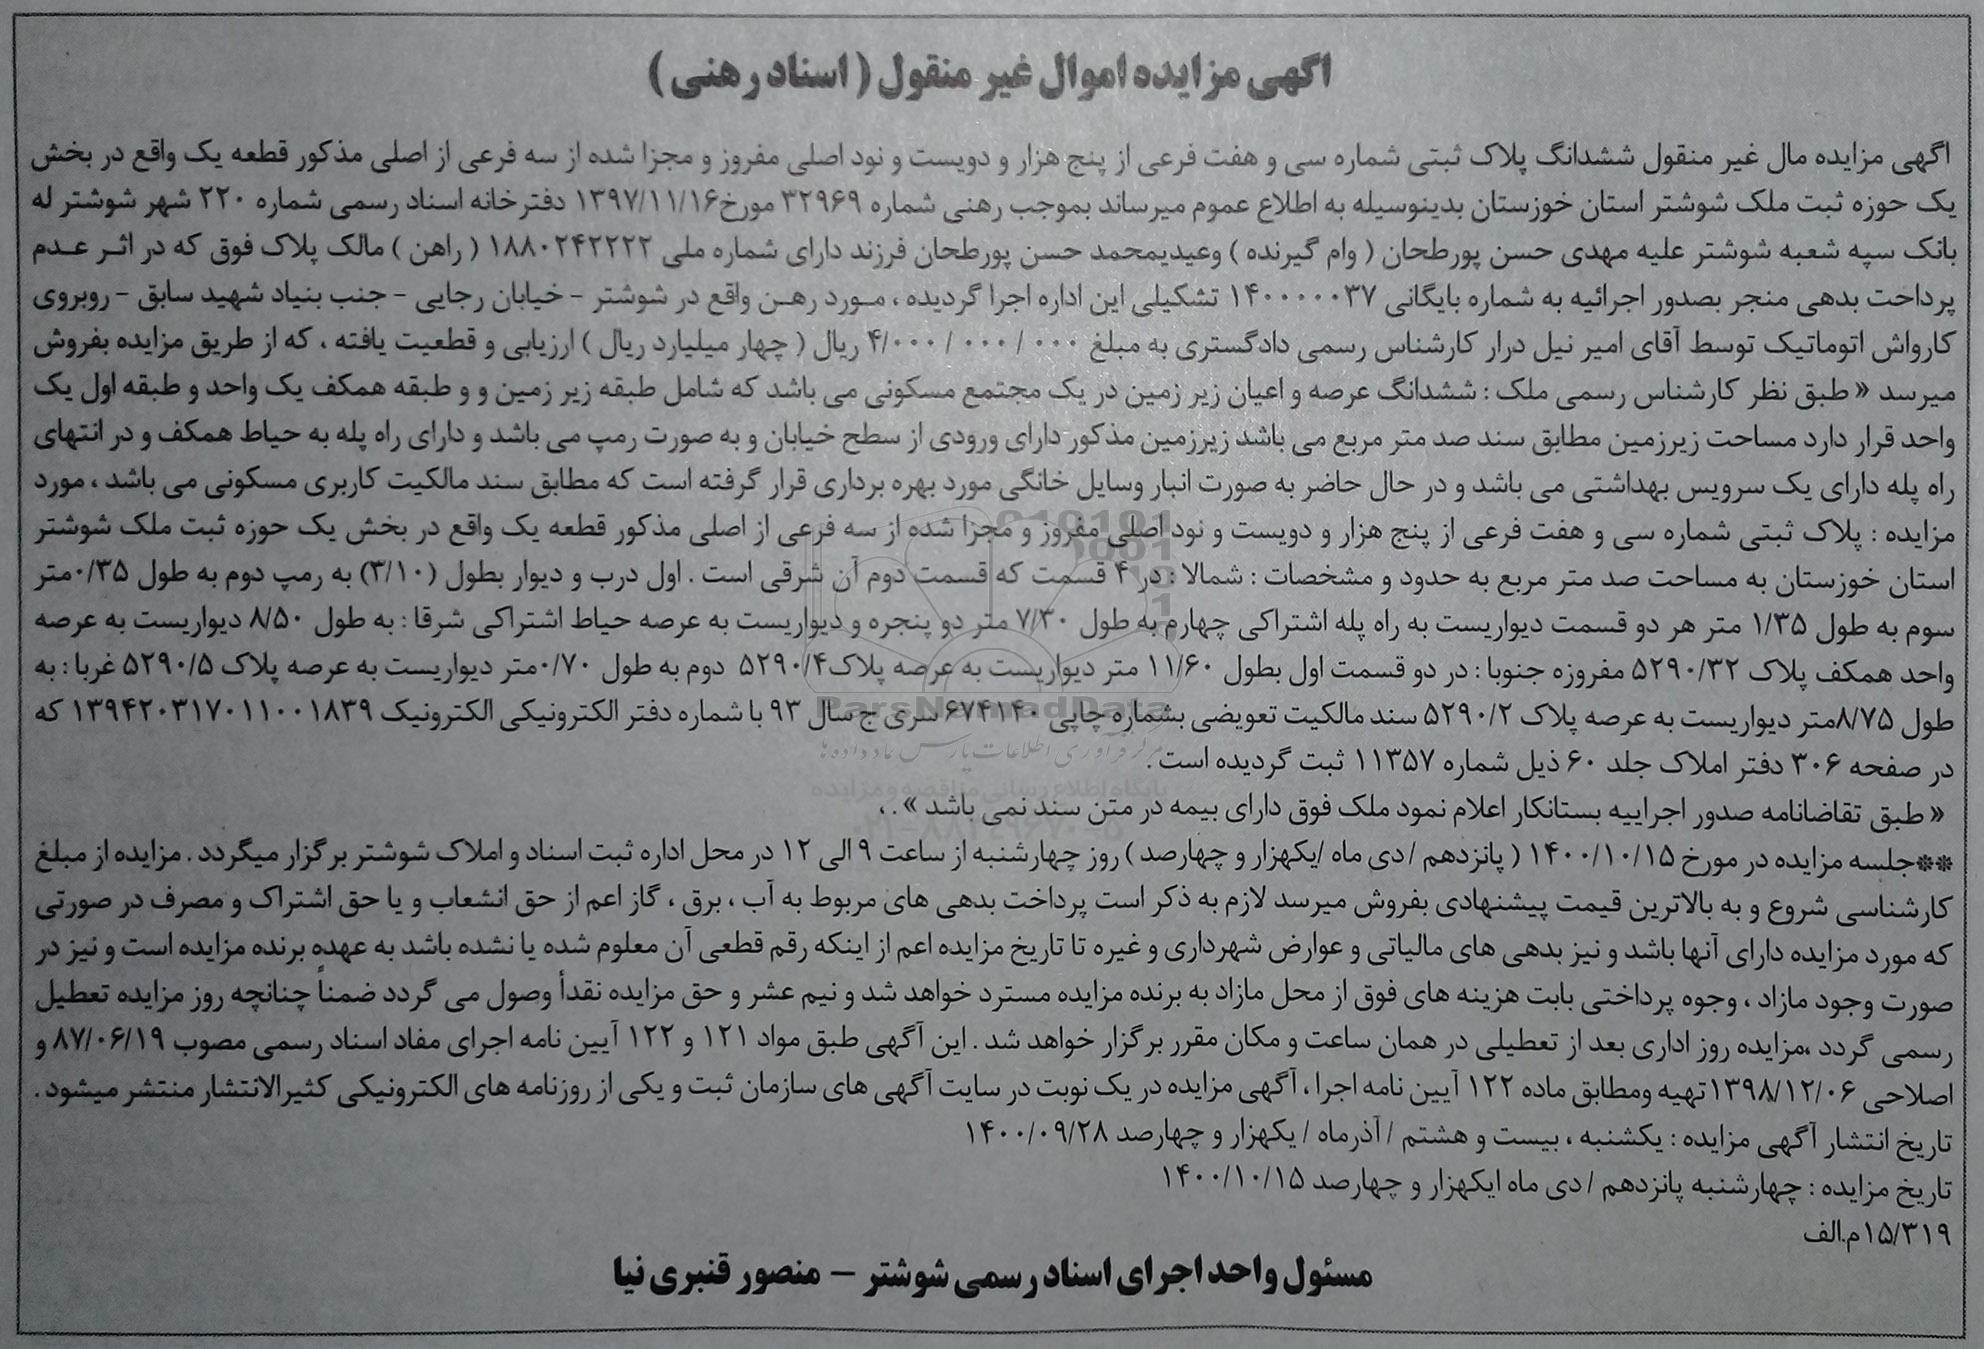 اگهی مزایده اموال غیر منقول ( اسناد رهنی )
اگهی مزایده مال غیر منقول ششدانگ پلاک ثبتی شماره سی و هفت فرعی از پنج هزار و دویست و نود اصلی مفروز و مجزا شده از سه فرعی از اصلی مذکور قطعه یک واقع در بخش
یک حوزه ثبت ملک شوشتر استان خوزستان بدینوسیله به اطلاع عموم میرساند بموجب رهنی شماره ۳۲۹۶۹ مورخ۱۳۹۷/۱۱/۱۶ دفترخانه اسناد رسمی شماره ۲۲۰ شهر شوشتر له
بانک سپه شعبه شوشتر علیه مهدی حسن پورطحان ( وام گیرنده ) وعیدیمحمد حسن پورطحان فرزند دارای شماره ملی ۱۸۸۰۲۴۲۲۲۲ ( راهن ) مالک پلاک فوق که در اثر عدم
پرداخت بدهی منجر بصدور اجرائیه به شماره بایگانی ۱۴۰۰۰۰۰۳۷ تشکیلی این اداره اجرا گردیده ، مورد رهن واقع در شوشتر - خیابان رجایی - جنب بنیاد شهید سابق - روبروی
کارواش اتوماتیک توسط آقای امیر نیل درار کارشناس رسمی دادگستری به مبلغ ۰۰۰ / ۰۰۰ / ۴/۰۰۰ ریال ( چهار میلیارد ریال ) ارزیابی و قطعیت یافته ، که از طریق مزایده بفروش
میرسد « طبق نظر کارشناس رسمی ملک : ششدانگ عرصه و اعیان زیر زمین در یک مجتمع مسکونی می باشد که شامل طبقه زیر زمین و و طبقه همکف یک واحد و طبقه اول یک
واحد قرار دارد مساحت زیرزمین مطابق سند صد متر مربع می باشد زیرزمین مذکور دارای ورودی از سطح خیابان و به صورت رمپ می باشد و دارای راه پله به حیاط همکف و در انتهای
راه پله دارای یک سرویس بهداشتی می باشد و در حال حاضر به صورت انبار وسایل خانگی مورد بهره برداری قرار گرفته است که مطابق سند مالکیت کاربری مسکونی می باشد ، مورد
مزایده : پلاک ثبتی شماره سی و هفت فرعی از پنج هزار و دویست و نود اصلی مفروز و مجزا شده از سه فرعی از اصلی مذکور قطعه یک واقع در بخش یک حوزه ثبت ملک شوشتر
استان خوزستان به مساحت صد متر مربع به حدود و مشخصات : شمالا : در ۴ قسمت که قسمت دوم آن شرقی است . اول درب و دیوار بطول (۳/۱۰) به رمپ دوم به طول ۰/۳۵متر
سوم به طول ۱/۳۵ متر هر دو قسمت دیواریست به راه پله اشتراکی چهارم به طول ۷/۳۰ متر دو پنجره و دیواریست به عرصه حیاط اشتراکی شرقا : به طول ۸/۵۰ دیواریست به عرصه
واحد همکف پلاک ۵۲۹۰/۳۲ مفروزه جنوبا : در دو قسمت اول بطول ۱۱/۶۰ متر دیواریست به عرصه پلاک۵۲۹۰/۴ دوم به طول ۰/۷۰متر دیواریست به عرصه پلاک ۵۲۹۰/۵ غربا : به
طول ۸/۷۵متر دیواریست به عرصه پلاک ۵۲۹۰/۲ سند مالکیت تعویضی بشماره چاپی ۶۷۴۱۴۰ سری ج سال ۹۳ با شماره دفتر الکترونیکی الکترونیک ۱۳۹۴۲۰۳۱۷۰۱۱۰۰۱۸۳۹ که
ParsNamadData
در صفحه ۳۰۶ دفتر املاک جلد ۶۰ ذیل شماره ۱۱۳۵۷ ثبت گردیده است .
مرکز فرآوری اطلاعات پارس نماد داده ها
پایگاه اطلاع رسانی مناقصه و مزایده
« طبق تقاضانامه صدور اجراییه بستانکار اعلام نمود ملک فوق دارای بیمه در متن سند نمی باشد » . ،
**جلسه مزایده در مورخ ۱۴۰۰/۱۰/۱۵ ( پانزدهم / دی ماه /یکهزار و چهارصد ) روز چهارشنبه از ساعت ۹ الی ۱۲ در محل اداره ثبت اسناد و املاک شوشتر برگزار میگردد . مزایده از مبلغ
کارشناسی شروع و به بالاترین قیمت پیشنهادی بفروش میرسد لازم به ذکر است پرداخت بدهی های مربوط به آب ، برق ، گاز اعم از حق انشعاب و یا حق اشتراک و مصرف در صورتی
که مورد مزایده دارای آنها باشد و نیز بدهی های مالیاتی و عوارض شهرداری و غیره تا تاریخ مزایده اعم از اینکه رقم قطعی آن معلوم شده یا نشده باشد به عهده برنده مزایده است و نیز در
صورت وجود مازاد ، وجوه پرداختی بابت هزینه های فوق از محل مازاد به برنده مزایده مسترد خواهد شد و نیم عشر و حق مزایده نقدأ وصول می گردد ضمناً چنانچه روز مزایده تعطیل
رسمی گردد ،مزایده روز اداری بعد از تعطیلی در همان ساعت و مکان مقرر برگزار خواهد شد . این آگهی طبق مواد ۱۲۱ و ۱۲۲ آیین نامه اجرای مفاد اسناد رسمی مصوب ۸۷/۰۶/۱۹ و
اصلاحی ۱۳۹۸/۱۲/۰۶تهیه ومطابق ماده ۱۲۲ آیین نامه اجرا ، آگهی مزایده در یک نوبت در سایت آگهی های سازمان ثبت و یکی از روزنامه های الکترونیکی کثیرالانتشار منتشر میشود .
تاریخ انتشار آگهی مزایده : یکشنبه ، بیست و هشتم / آذرماه / یکهزار و چهارصد ۱۴۰۰/۰۹/۲۸
تاریخ مزایده : چهارشنبه پانزدهم / دی ماه ایکهزار و چهارصد ۱۴۰۰/۱۰/۱۵
۱۵/۳۱۹م.الف
مسئول واحد اجرای اسناد رسمی شوشتر – منصور قنبری نیا